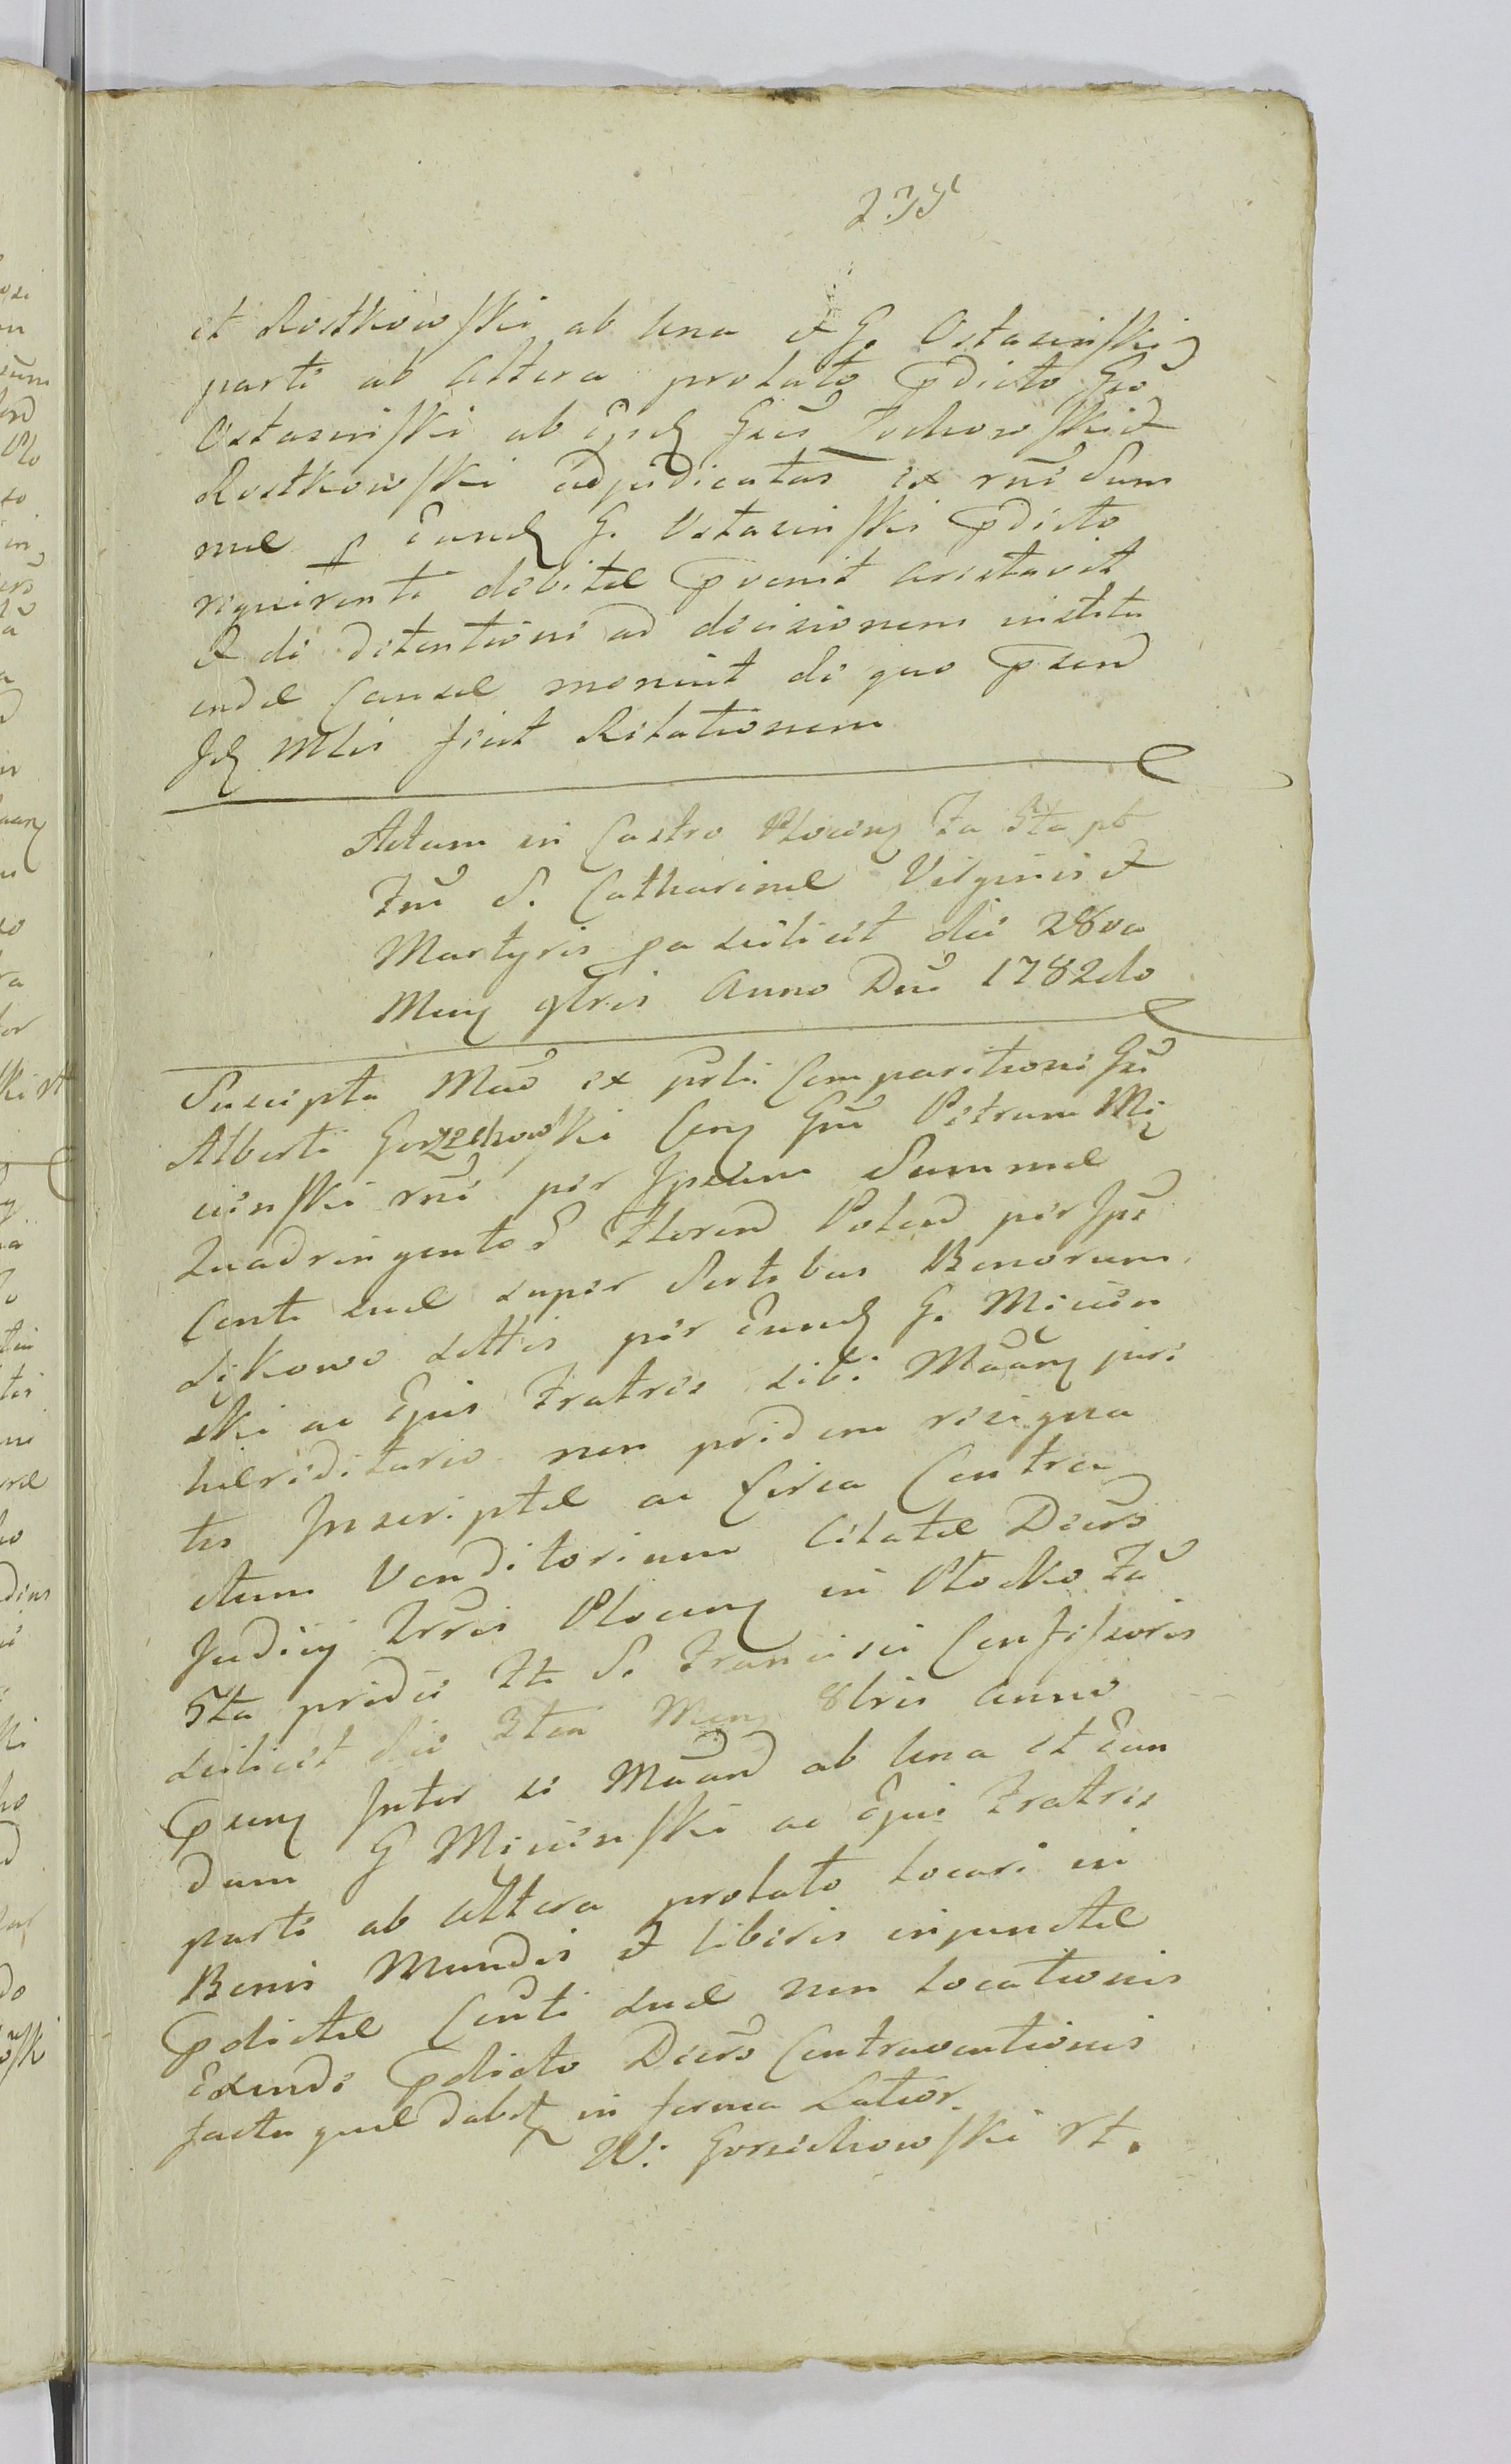 235
et Rostkowski ab una et G. Ostaszewski
parte ab altera prolato pdicto Gso
Ostaszewski ab ijsd Gsis Zochowski et
Rostkowski adjudicatas ex rne Sum
mae p Eund G. Ostaszewski pdicto
requirenti debitae pvenit arestavit
et de detentione ad decisionem institu
endae Causae monuit de quo psen
Jd Mlis fecit Relationem
Actum in Castro Plocen Fa 5ta pt
Ftu S. Catharinae Virginis et
Martyris pa scilicet die 28va
Mens 9bris Anno Dni 1782do
Suscepta Mao ex prli Comparitione Gsi
Alberti Gorzechowski Con Gsu Petrum Mi
cinski rne per Ipsum Summae
Quadringentor Floren Polon per Ipsu
Conte suae super Sortibus Bonorum
Sikowo dettis per Eund G. Micin
ski ac Ejus Fratres sibi Maan juri
haereditario non pridem resigna
tis Inscriptae ac Circa Contra
ctum Venditorium Citatae Decrto
Judicij Trris Plocen in Plocko Fa
5ta pridie Fti S. Francisci Confessoris
scilicet die 3tia Mens 8bris anno
psen Inter se Maan ab una et Eun
dum G Micinski ac Ejus Fratres
parte ab altera prolato locari in
Bonis Mundis et liberis injunctae
pdictae Conti suae non locationis
Exinde pdicto Decrto Contraventionis
facta quae dabit in forma Latior.
W: Gorzechowski rt.